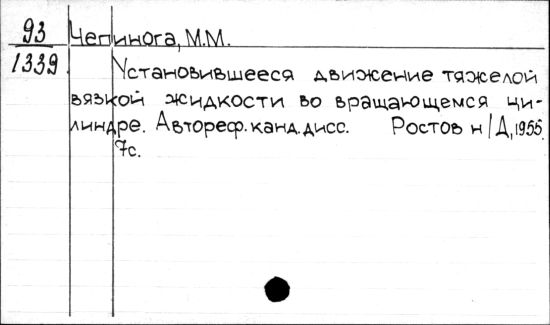 93
1339
Чепинога, М.М.
Установившееся движение тяжелой
вязкой жидкости во вращающемся ци-
линдре. Автореф. канд. дисс. Ростов н/Д, 1955
7с.